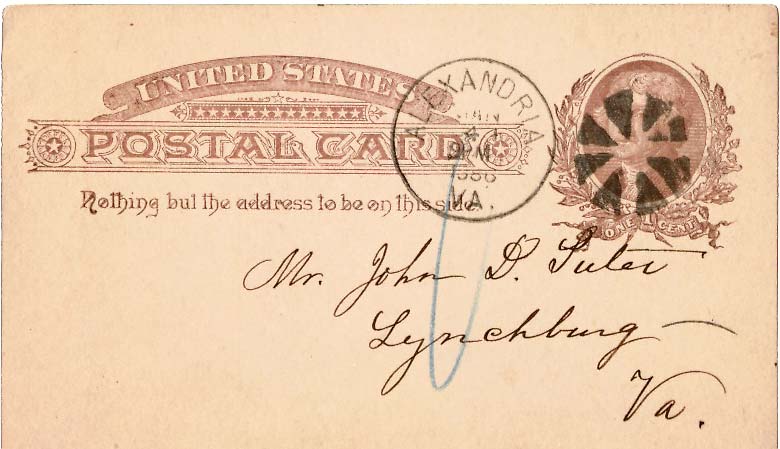 UNITED STATES
POSTAL CARD
Nothing but the address to be on this side.
ALEXANDRIA
JAN
VA.
ONE CENT
Mr. John D.
Lynchburg
Va.